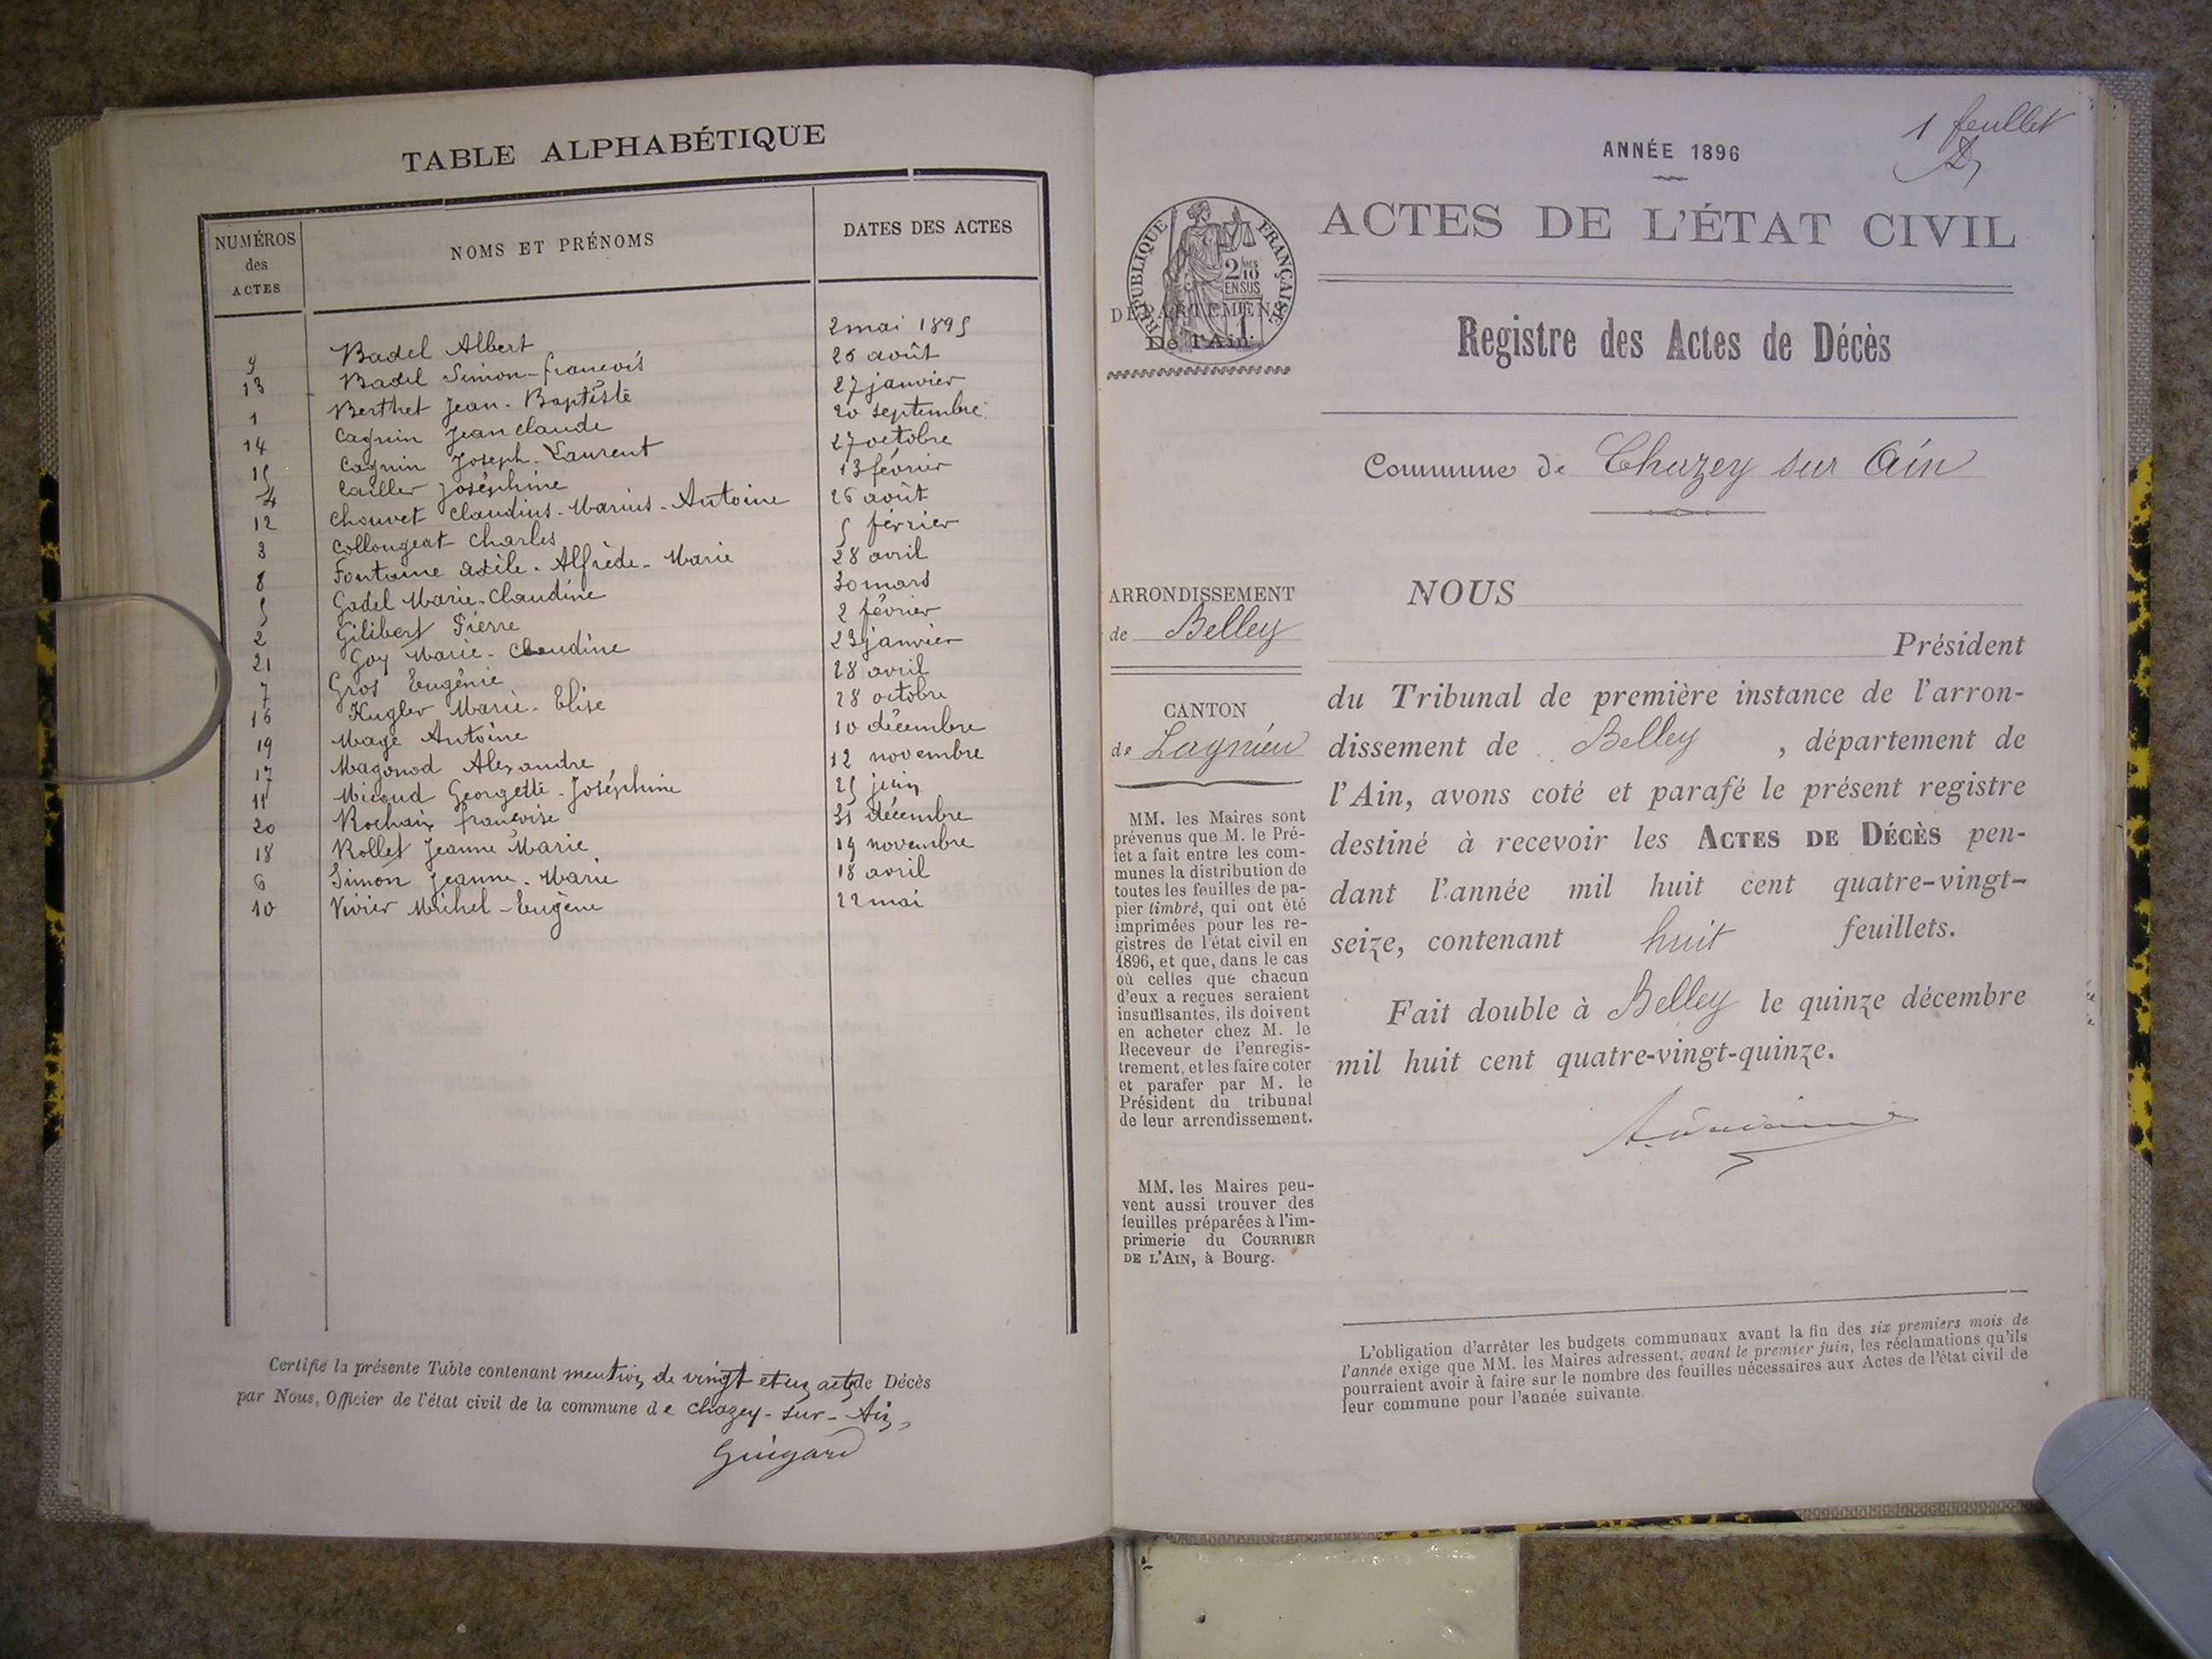 TABLE ALPHABÉTIQUE
NUMÉROS des ACTES NOMS ET PRÉNOMS DATES DES ACTES
9 Badel Albert 2 mai 1895
13 Badel Simon-françois 26 août
1 Berthet Jean-Baptiste 27 janvier
14 Cagnin Jean Claude 20 septembre
15 Cagnin Joseph-Laurent 27 octobre
4 Cailler Joséphine 13 février
12 Chouvet Claudius-Marius-Antoine 26 août
3 Collongeat Charles 5 février
8 Fontaine Alfrède-Marie 28 avril
5 Godel Marie-Claudine 30 mars
2 Gilibert Pierre 2 février
21 Goy Marie-Claudine 23 janvier
7 Gros Eugénie 28 avril
16 Kugler Marie-Elise 28 octobre
19 Mage Antoine 10 décembre
17 Magonod Alexandre 12 novembre
11 Micoud Georgette-Joséphine 25 juin
20 Rochaix françoise 31 décembre
18 Rollet Jeanne Marie 19 novembre
6 Simon Jeanne-Marie 18 avril
10 Vivier Michel-Eugène 22 mai
Certifié la présente Table contenant mention de vingt et un actes de Décès
par Nous, Officier de l'état civil de la commune de Chazey-sur-Ain,
Guigard
1 feuillet
ANNÉE 1896
ACTES DE L'ÉTAT CIVIL
RÉPUBLIQUE FRANÇAISE
2/10 EN SUS
DÉPARTEMENT
De l'Ain
Registre des Actes de Décès
Commune de Chazey sur Ain
ARRONDISSEMENT
de Belley
CANTON
de Lagnieu
MM. les Maires sont
prévenus que M. le Pré-
fet a fait entre les com-
munes la distribution de
toutes les feuilles de pa-
pier timbré, qui ont été
imprimées pour les re-
gistres de l'état civil en
1896, et que, dans le cas
où celles que chacun
d'eux a reçues seraient
insuffisantes, ils doivent
en acheter chez M. le
Receveur de l'enregis-
trement, et les faire coter
et parafer par M. le
Président du tribunal
de leur arrondissement.
MM. les Maires peu-
vent aussi trouver des
feuilles préparées à l'im-
primerie du COURRIER
DE L'AIN, à Bourg.
NOUS
Président
du Tribunal de première instance de l'arron-
dissement de Belley , département de
l'Ain, avons coté et parafé le présent registre
destiné à recevoir les ACTES DE DÉCÈS pen-
dant l'année mil huit cent quatre-vingt-
seize, contenant huit feuillets.
Fait double à Belley le quinze décembre
mil huit cent quatre-vingt-quinze.
L'obligation d'arrêter les budgets communaux avant la fin des six premiers mois de
l'année exige que MM. les Maires adressent, avant le premier juin, les réclamations qu'ils
pourraient avoir à faire sur le nombre des feuilles nécessaires aux Actes de l'état civil de
leur commune pour l'année suivante.